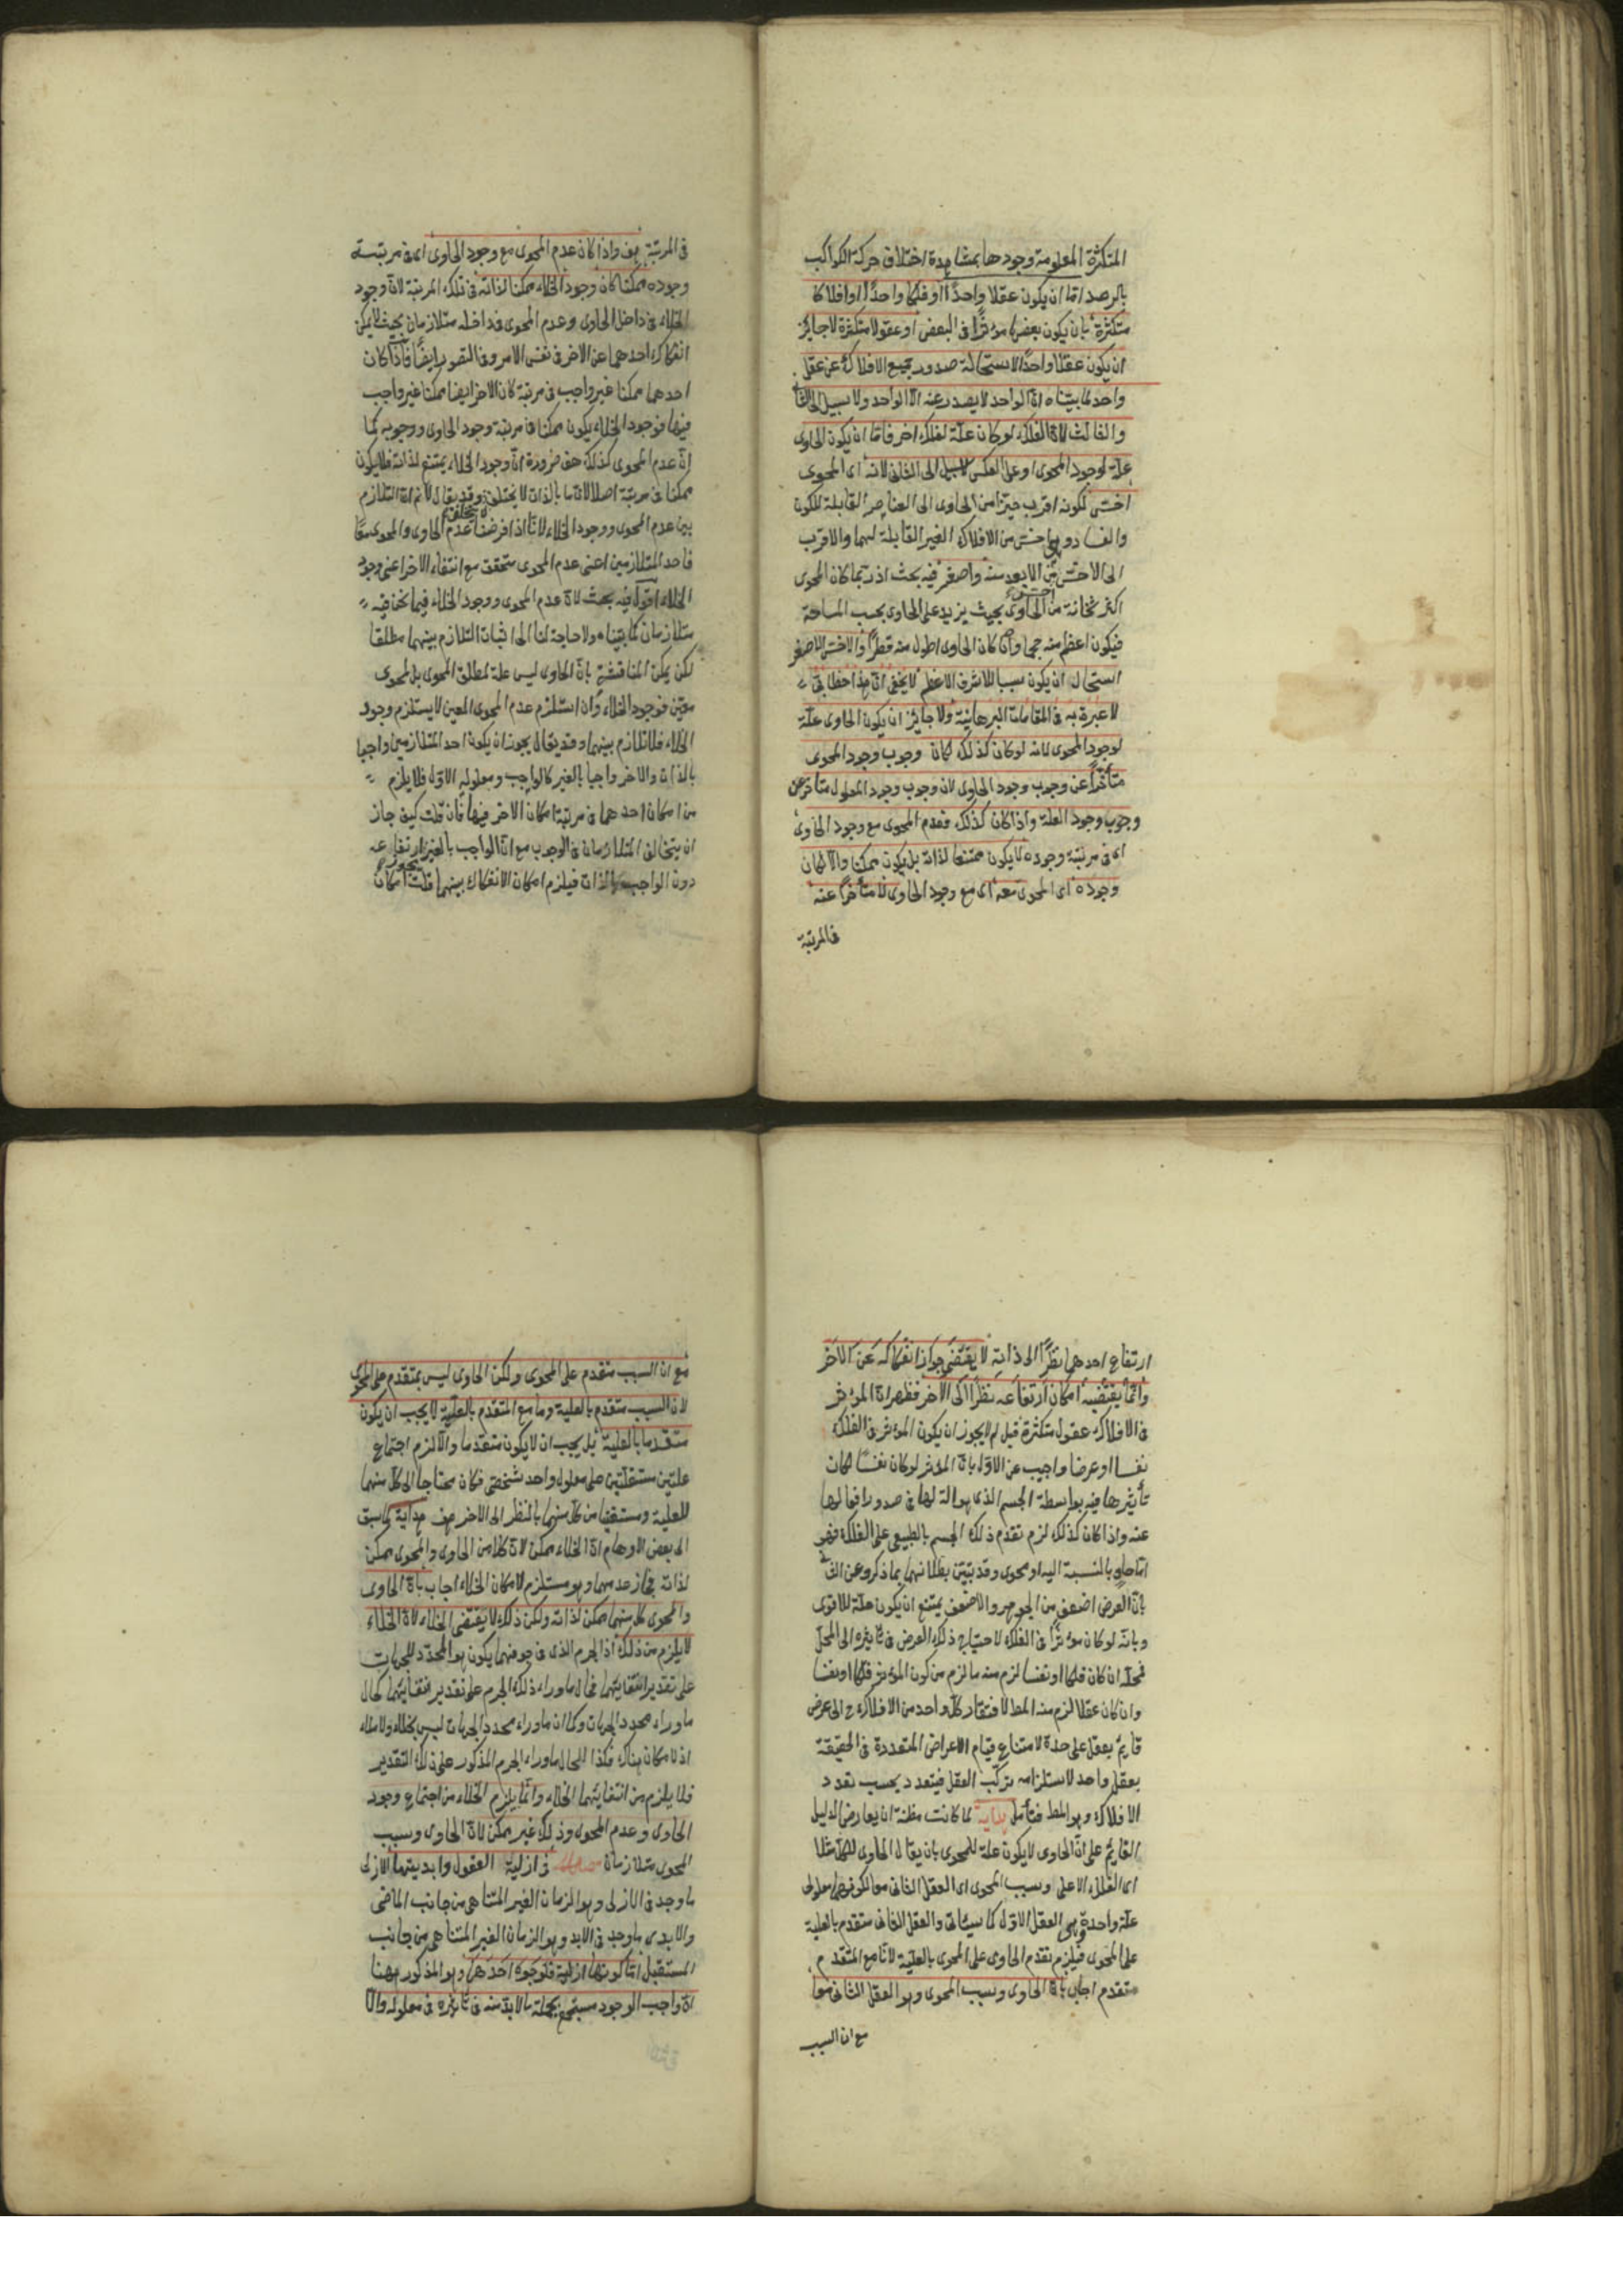 المتكثرة المعلومة وجودها بمشاهدة اختلاف حركة الكواكب
بالرصد اما ان يكون عقلا واحدًا او فلكا واحدًا او افلاكا
متكثرة بان يكون بعضها مؤثرًا فى البعض او عقولا متكثرة لا جائز
ان يكون عقلا واحدًا لاستحالة صدور جميع الافلاك عن عقل
واحد لما بيّناه انّ الواحد لا يصدر عنه الّا الواحد ولا سبيل الى
والثالث لانّ الفلك لو كان علّة لفلك اخر فاما ان يكون الحاوى
علة لوجود المحوى او على العكس لا سبيل الى الثانى لانه اى المحوى
اخسّ لكونه اقرب حيزا من الحاوى الى العناصر القابلة للكون
والفساد وهى اخس من الافلاك الغير القابلة لهما والاقرب
الى الاخسّ من الابعد منه واصغر فيه بحث اذ ربما كان المحوى
اكثر ثخانة من الحاوى بحيث يزيد على الحاوى بحسب المساحة
فيكون اعظم منه حجما وان كان الحاوى اطول منه قطرًا والاخس الاصغر
استحال ان يكون سببا للاشرف الاعظم لا يخفى انّ هذا خطابى
لا عبرة به فى المقامات البرهانية ولا جائز ان يكون الحاوى علّة
لوجود المحوى لانه لو كان كذلك لكان وجوب وجود المحوى
متأخرًا عن وجوب وجود الحاوى لان وجوب وجود المعلول متأخر عن
وجوب وجود العلة واذا كان كذلك فعدم المحوى مع وجود الحاوى
اى فى مرتبة وجوده لا يكون ممتنعا لذاته بل يكون ممكنا والّا لكان
وجوده اى المحوى معه اى مع وجود الحاوى لا متأخرًا عنه
فى المرتبة
فى المرتبة هف واذا كان عدم المحوى مع وجود الحاوى اى فى مرتبة
وجوده ممكنا كان وجود الخلاء ممكنا لذاته فى تلك المرتبة لان وجود
الخلاء فى داخل الحاوى وعدم المحوى فى داخله متلازمان بحيث لا يمكن
انفكاك احدهما عن الاخر فى نفس الامر وفى التصور ايضًا فاذا كان
احدهما ممكنا غير واجب فى مرتبة كان الاخر ايضا ممكنا غير واجب
فيها فوجود الخلاء يكون ممكنا فى مرتبة وجود الحاوى ووجوبه كما
انّ عدم المحوى كذلك هف ضرورة انّ وجود الخلاء يمتنع لذاته فلا يكون
ممكنا فى مرتبة اصلا لان ما بالذات لا يختلف وقد يقال لا نم ان التلازم
لا يتخلف
بين عدم المحوى ووجود الخلاء لانّا اذا فرضنا عدم الحاوى والمحوى معًا
فاحد المتلازمين اعنى عدم المحوى متحقق مع انتفاء الاخر اعنى وجود
الخلاء اقول فيه بحث لانّ عدم المحوى ووجود الخلاء فيما نحن فيه
متلازمان كما بيّناه ولا حاجة لنا الى اثبات التلازم بينهما مطلقا
لكن يمكن المناقشة بانّ الحاوى ليس علة لمطلق المحوى بل لمحوى
معيّن فوجود الخلاء وان استلزم عدم المحوى المعين لا يستلزم وجود
الخلاء فلا تلازم بينهما وقد يقال يجوز ان يكون احد المتلازمين واجبا
بالذات والاخر واجبا بالغير كالواجب ومعلوله الاول فلا يلزم
من امكان احدهما فى مرتبة امكان الاخر فيها فان قلت كيف جاز
ان يتخالف المتلازمان فى الوجوب مع انّ الواجب بالغير ارتفاعه
دون الواجب بالذات فيلزم امكان الانفكاك بينهما قلت امكان
ارتفاع احدهما نظرًا الى ذاته لا يقتضى جواز انفكاكه عن الاخر
وانّما يقتضيه امكان ارتفاعه نظرًا الى الاخر فظهر ان المؤثر
فى الافلاك عقول متكثرة قيل لم لا يجوز ان يكون المؤثر فى الفلك
نفسا او عرضا واجيب عن الاول بانّ المؤثر لو كان نفسًا لكان
تأثيرها فيه بواسطة الجسم الذى هو الة لها فى صدور افعالها
عنه واذا كان كذلك لزم تقدم ذلك الجسم بالطبع على الفلك فهو
اما حاو بالنسبة اليه او محوى وقد بيّن بطلانهما بما ذكر وعن
بانّ العرض اضعف من الجوهر والاضعف يمتنع ان يكون علة للاقوى
وبانّه لو كان مؤثرًا فى الفلك لاحتياج ذلك العرض فى تاثيره الى المحلّ
فمحله ان كان فلكا او نفسا لزم منه ما لزم من كون المؤثر فلكا او نفسا
وان كان عقلا لزم منه المط لافتقار كل واحد من الافلاك ح الى عرض
قايم بعقل على حدة لامتناع قيام الاعراض المتعددة فى الحقيقة
بعقل واحد لاستلزامه تركّب العقل فيتعدد بحسب تعدد
الافلاك وهو المط فتأمل هداية لما كانت مظنة ان يعارض الدليل
القايم على انّ الحاوى لا يكون علة للمحوى بان يقال الحاوى للكل مثلا
اى الفلك الاعلى وسبب المحوى اى العقل الثانى معا لكونهما معلولى
علّة واحدة وهى العقل الاوّل كما سيأتى والعقل الثانى متقدم بالعلية
على المحوى فيلزم تقدم الحاوى على المحوى بالعليّة لان ما مع المتقدم
متقدم اجاب بانّ الحاوى وسبب المحوى وهو العقل الثانى معا
مع ان السبب
مع ان السبب متقدم على المحوى ولكن الحاوى ليس بمتقدم على المحوى
لان السبب متقدم بالعلية وما مع المتقدم بالعليّة لا يجب ان يكون
متقدما بالعلية بل يجب ان لا يكون متقدما والّا لزم اجتماع
علتين مستقلّتين على معلول واحد شخصى فكان محتاجا الى كل منهما
للعلية ومستغنيا عن كل منهما بالنظر الى الاخر هف هداية كما سبق
الى بعض الاوهام انّ الخلاء ممكن لانّ كلا من الحاوى والمحوى ممكن
لذاته فجاز عدمهما وهو مستلزم لامكان الخلاء اجاب بانّ الحاوى
والمحوى كل منهما ممكن لذاته ولكن ذلك لا يقتضى الخلاء لانّ الخلاء
لا يلزم من ذلك اذ الجرم الذى فى جوفهما يكون هو المحدّد للجهات
على تقدير انتفائيهما فحال ما وراء ذلك الجرم على تقدير انتفائيهما كحال
ما وراء محدد الجهات وكما ان ما وراء محدد الجهات ليس بخلاء ولا ملاء
اذ لا مكان هناك فكذا الحال ما وراء الجرم المذكور على ذلك التقدير
فلا يلزم من انتفائيهما الخلاء وانّما يلزم الخلاء من اجتماع وجود
الحاوى وعدم المحوى وذلك غير ممكن لانّ الحاوى وسبب
المحوى متلازمان فى ازلية العقول وابديتها الازلى
ما وجد فى الازل وهو الزمان الغير المتناهى من جانب الماضى
والابدى ما وجد فى الابد وهو الزمان الغير المتناهى من جانب
المستقبل اما كونها ازلية فلوجوه احدها وهو المذكور ههنا
انّ واجب الوجود مستجمع بجملة ما لا بد منه فى تاثيره فى معلوله والّا